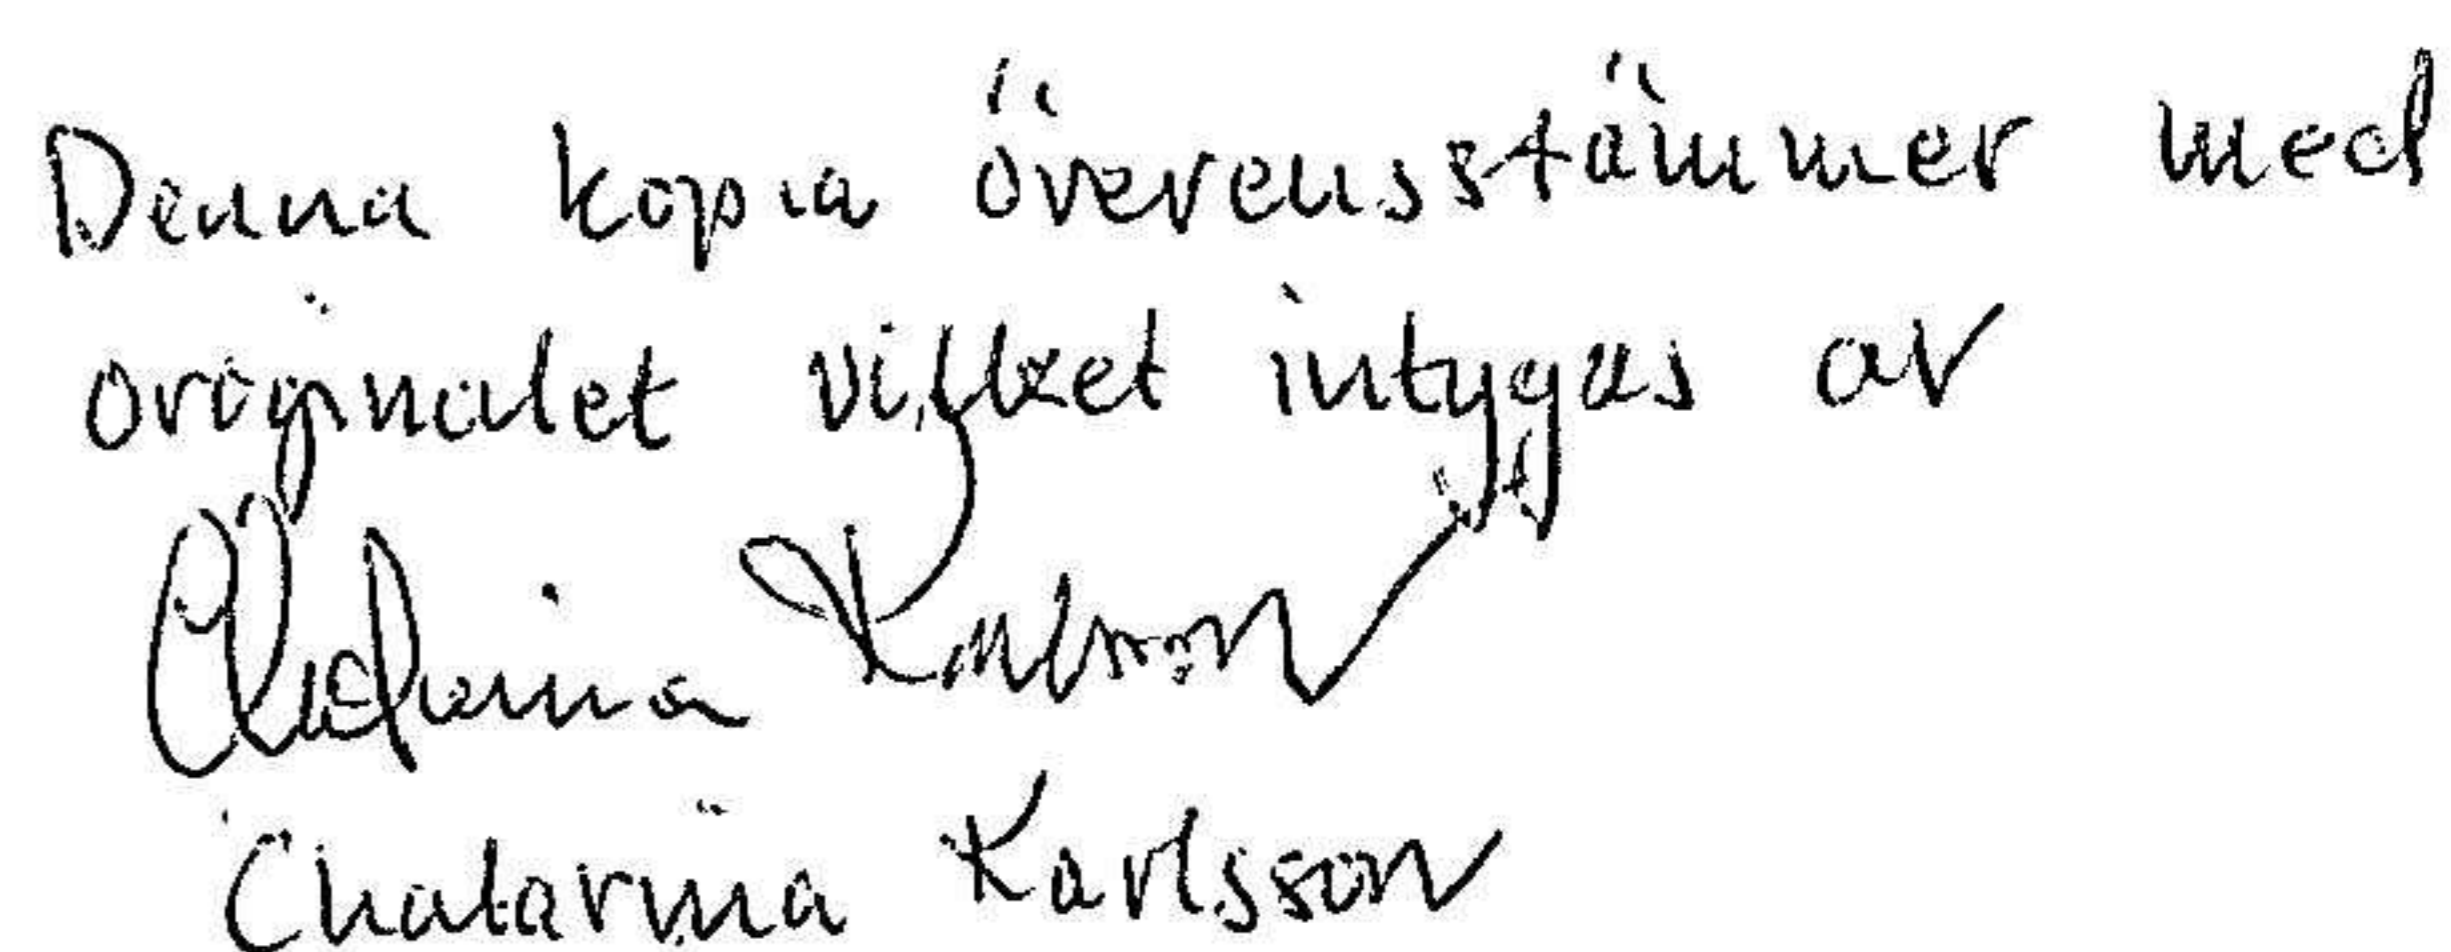 Denna kopia överensstämmer med
originalet vilket intygas av
Chatarina Karlsson
Chatarina Karlsson